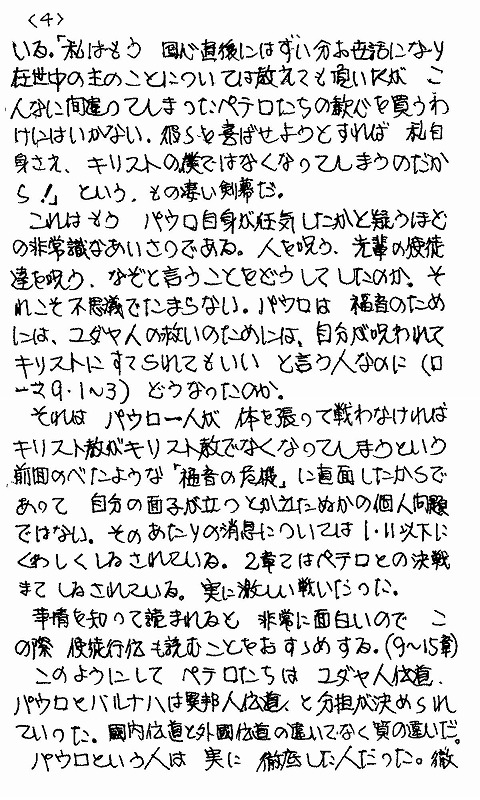 〈4〉
いる。「私はもう 回心直後にはずい分お世話になり
在世中の主のことについては教えても頂いたが こ
んなに間違ってしまったペテロたちの歓心を買うわ
けにはいかない。彼らを喜ばせようとすれば 私自
身さえ、キリストの僕ではなくなってしまうのだか
ら!」という、もの凄い剣幕だ。
これはもう パウロ自身が狂気したかと疑うほど
の非常識なあいさつである。人を呪う、先輩の使徒
達を呪う、なぞと言うことをどうしてしたのか。そ
れこそ不思議でたまらない。パウロは 福音のため
には、ユダヤ人の救いのためには、自分が呪われて
キリストにすてられてもいい と言う人なのに(ロ
ーマ9・1~3) どうなったのか。
それは パウロ一人が 体を張って戦わなければ
キリスト教がキリスト教でなくなってしまうという
前回のべたような「福音の危機」に直面したからで
あって 自分の面子が立つとか立たぬかの個人問題
ではない。そのあたりの消息については1・11以下に
くわしくしるされている。2章ではペテロとの決戦
までしるされている。実に激しい戦いだった。
事情を知って読まれると 非常に面白いので こ
の際 使徒行伝も読むことをおすゝめする。(9~15章)
このようにして ペテロたちは ユダヤ人伝道、
パウロとバルナバは異邦人伝道、と分担が決められ
ていった。國内伝道と外國伝道の違いでなく質の違いだ。
パウロという人は 実に 徹底した人だった。徹